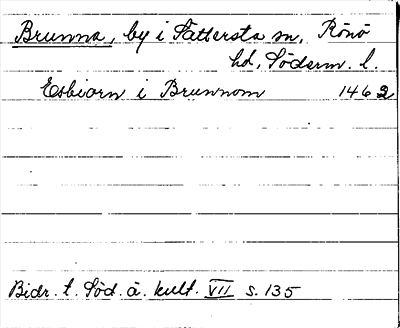 Brunna, by i Sättersta sn, Rönö
hd, Söderm. l.
Esbiorn i Brunnom 1462
Bidr. t. Söd. ä. kult. VII s. 135